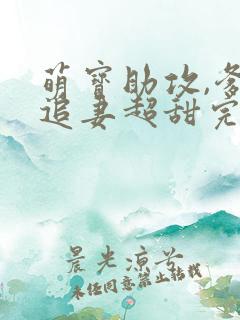 萌宝助攻,爹
追妻超甜完
晨光凉兮
未经同意禁止转载